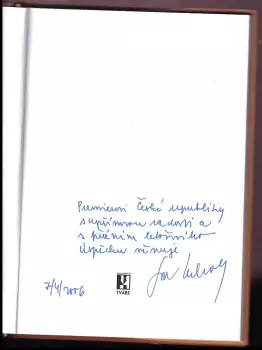 Premierovi České republiky
s upřímnou radostí a
s přáním letošního
úspěchu věnuje
7/4/2006
TVÁŘE